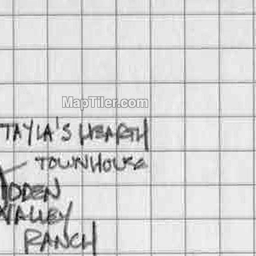 MapTiler.com
TAYLA'S HEARTH
TOWNHOUSE
ODDEN
VALLEY
RANCH